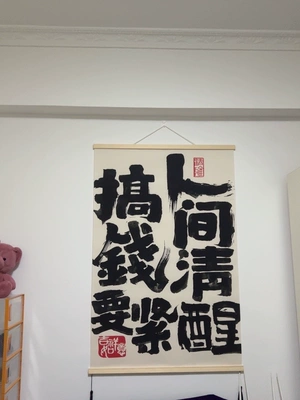 人间清醒
搞錢要緊